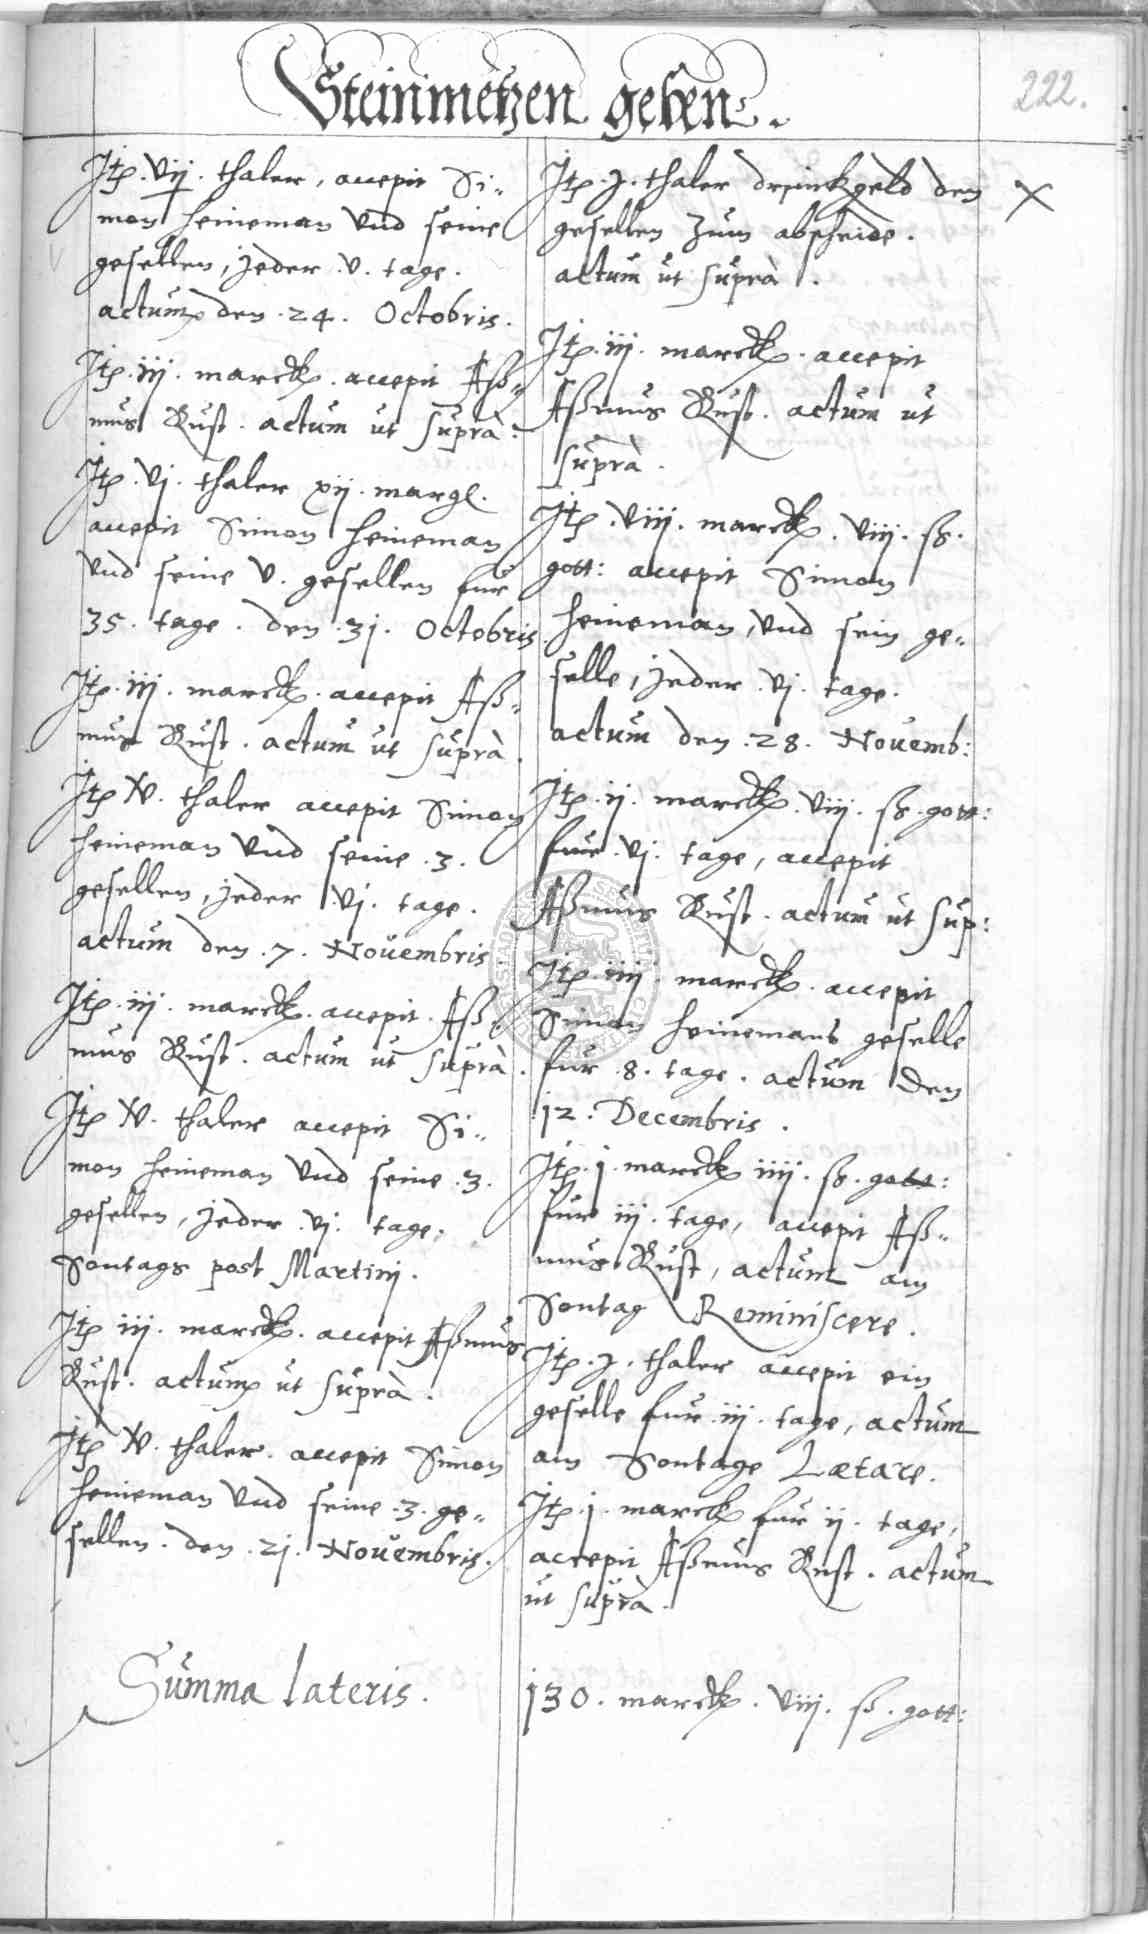 Steinmetzen geben.
222.
Itp. vij. thaler, accepit Si-
mon Heineman vnd seine
gesellen, jeder .v. tage.
actum den .24. Octobris.
Itp. iij. marck. accepit Aß-
mus Rust. actum ut suprà.
Itp. vj. thaler xij. margl.
accepit Simon Heineman
vnd seine v. gesellen fur
35. tage. den .31. Octobris
Itp. iij. marck. accepit Aß-
mus Rust. actum ut suprà.
Itp. thaler accepit Simon
Heineman vnd seine .3.
gesellen, jeder vj. tage.
actum den .7. Nouembris.
Itp. iij. marck. accepit Aß-
mus Rust. actum ut suprà.
Itp. thaler accepit Si-
mon Heineman vnd seine .3.
gesellen, jeder vj. tage.
Sontags post Martinj.
Itp. iij. marck. accepit Aßmus
Rust. actum ut suprà.
Itp. thaler accepit Simon
Heineman vnd seine .3. ge-
sellen. den .21. Nouembris.
Itp. j. thaler drinckgeld den
gesellen zum abscheide.
actum ut suprà.
Itp. iij. marck. accepit
Aßmus Rust. actum ut
suprà.
Itp. viij. marck. viij. ß.
gott: accepit Simon
Heineman, vnd sein ge-
selle, jeder vj. tage.
actum den .28. Nouemb:
Itp. ij. marck. viij. ß. gott:
fur vj. tage, accepit
Aßmus Rust. actum ut sup:
Itp. iiij. marck. accepit
Simon Heinemans geselle
fur .8. tage. actum den
12. Decembris.
Itp. j. marck iiij. ß. gott:
fur iij. tage, accepit Aß-
mus Rust, actum am
Sontag Reminiscere.
Itp. j. thaler accepit ein
geselle fur iij. tage, actum
am Sontage Lætare.
Itp. j. marck fur ij. tage,
accepit Aßmus Rust. actum
ut suprà.
Summa lateris. 130. marck. viij. ß. gott: